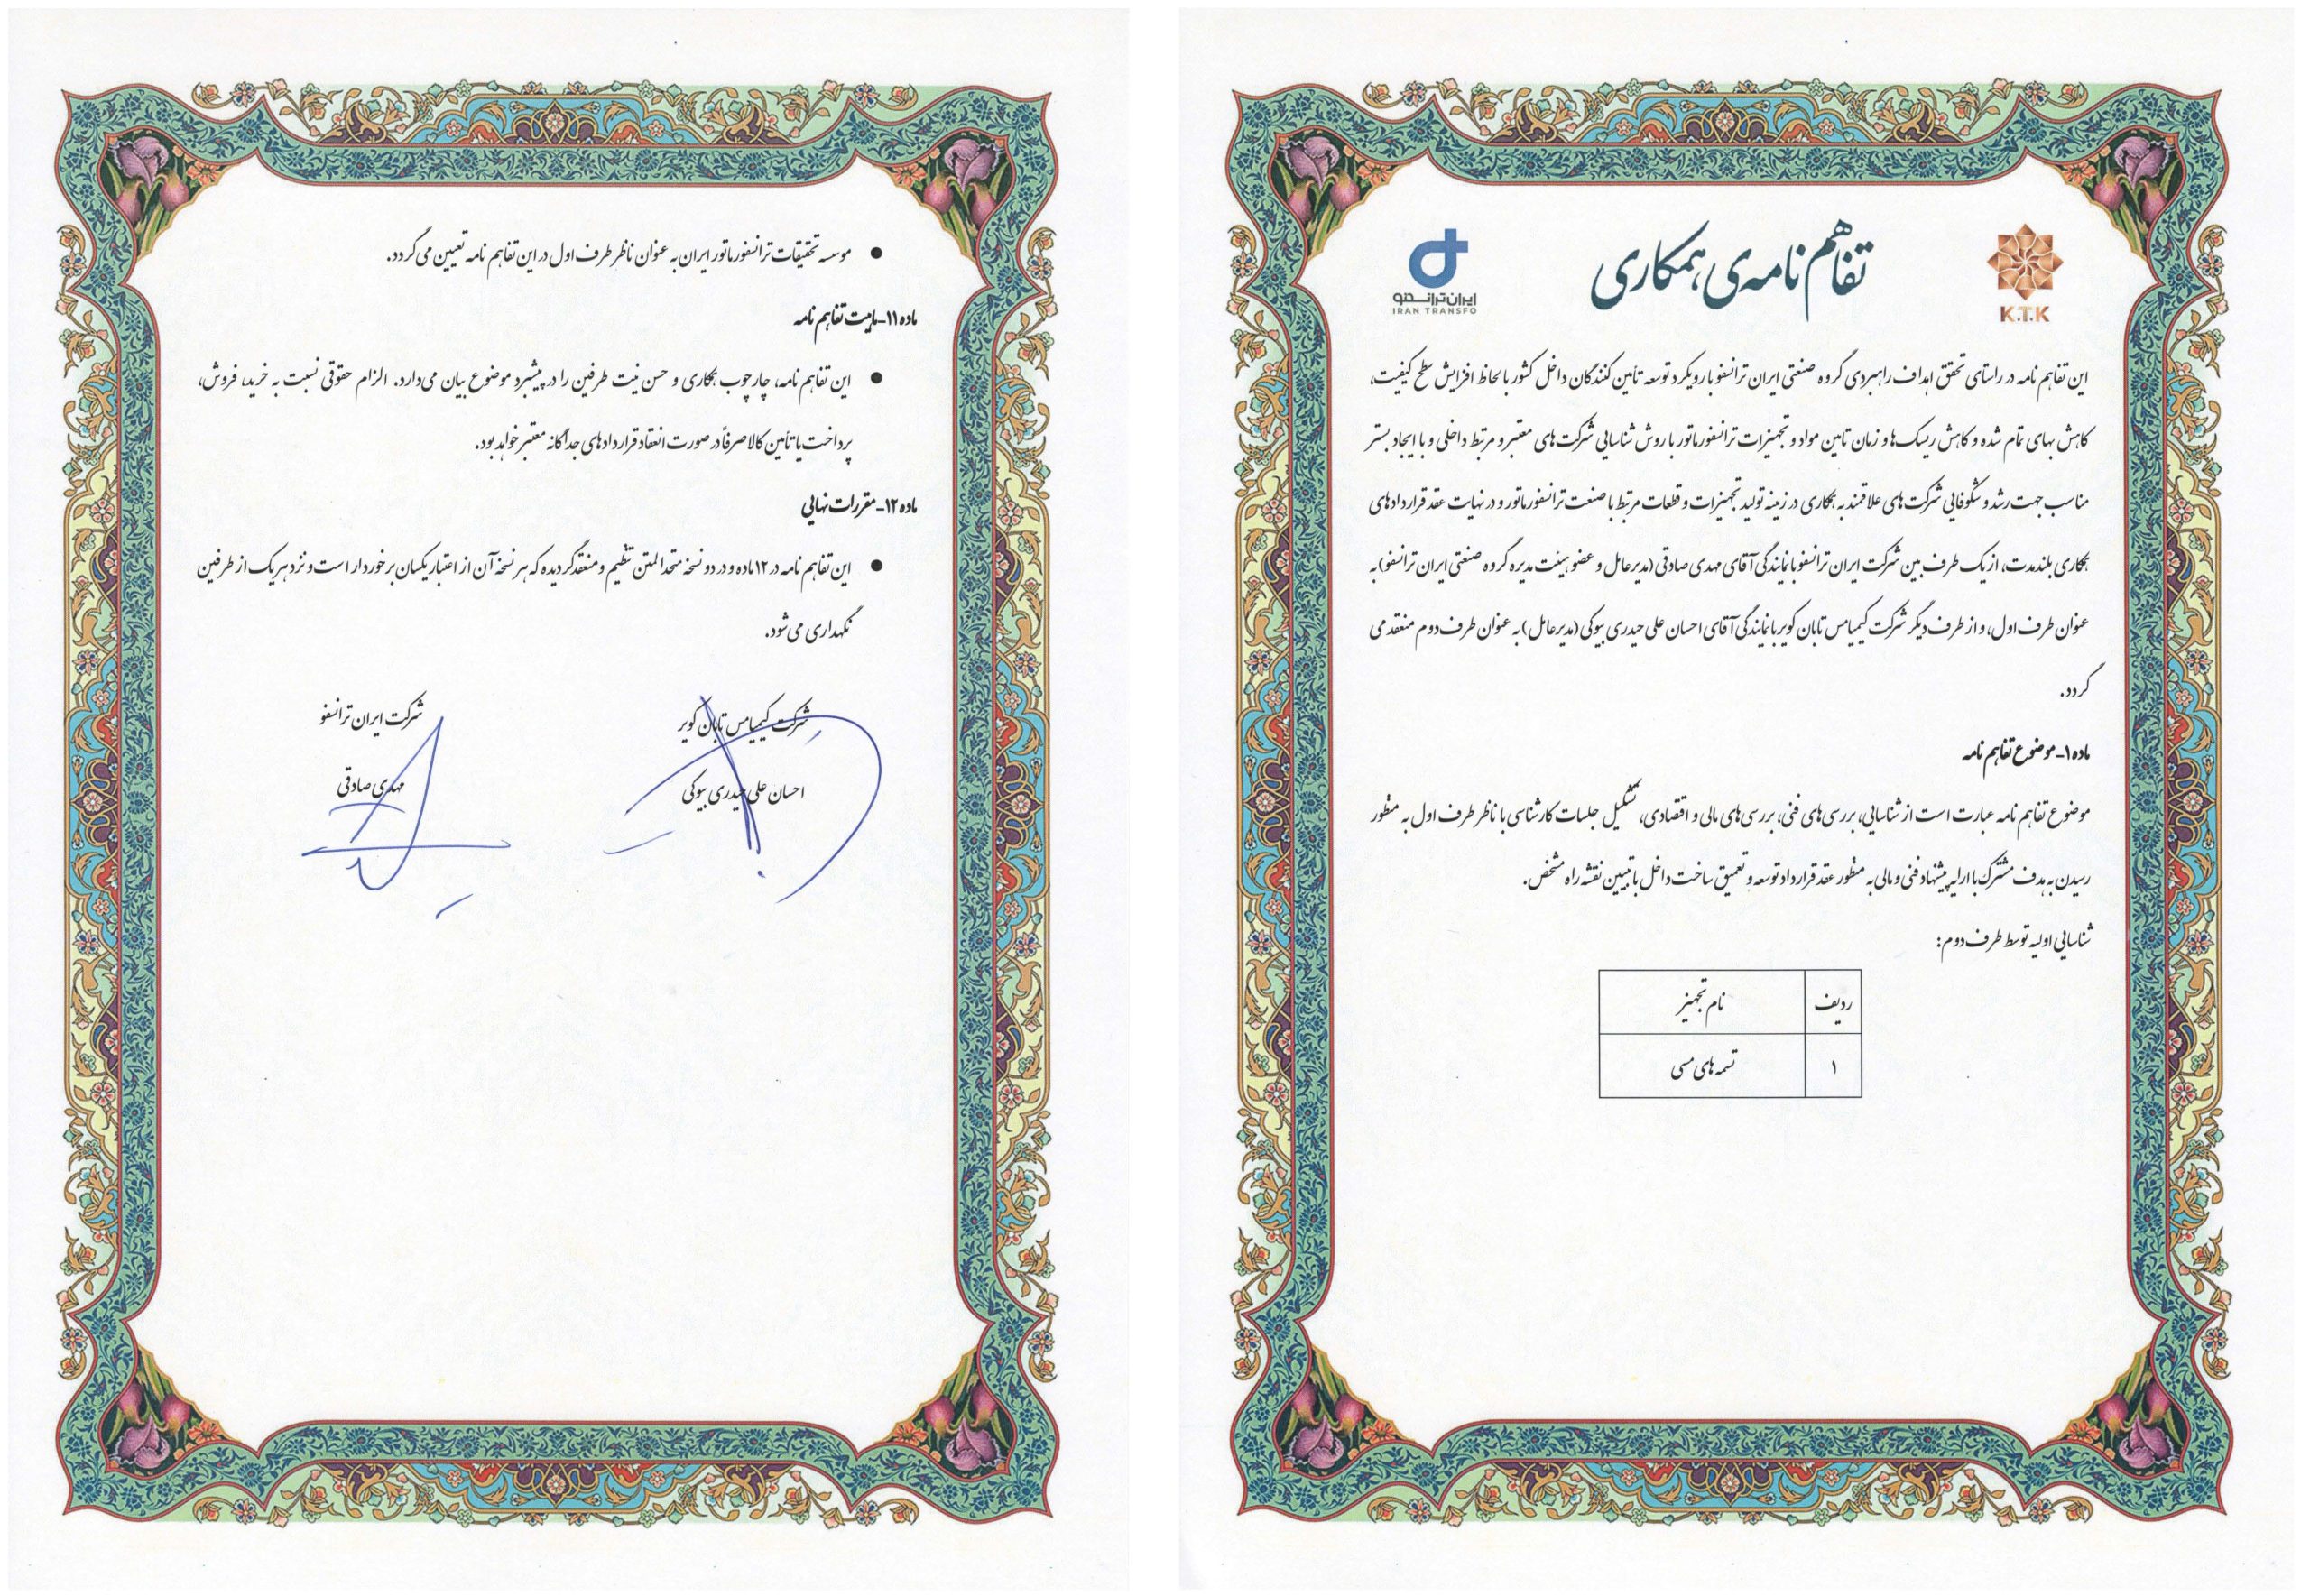 K.T.K
تفاهم نامه‌ی همکاری
ایران ترانسفو
IRAN TRANSFO
این تفاهم نامه در راستای تحقق اهداف راهبردی گروه صنعتی ایران ترانسفو با رویکرد توسعه تأمین کنندگان داخل کشور با لحاظ افزایش سطح کیفیت،
کاهش بهای تمام شده و کاهش ریسک ها و زمان تامین مواد و تجهیزات ترانسفورماتور با روش شناسایی شرکت های معتبر و مرتبط داخلی و با ایجاد بستر
مناسب جهت رشد و شکوفایی شرکت های علاقمند به همکاری در زمینه تولید تجهیزات و قطعات مرتبط با صنعت ترانسفورماتور و در نهایت عقد قرارداد های
همکاری بلندمدت، از یک طرف بین شرکت ایران ترانسفو با نمایندگی آقای مهدی صادقی (مدیرعامل و عضو هیئت مدیره گروه صنعتی ایران ترانسفو) به
عنوان طرف اول، و از طرف دیگر شرکت کیمیا مس تابان کویر با نمایندگی آقای احسان علی حیدری بیوکی (مدیرعامل) به عنوان طرف دوم منعقد می
گردد.
ماده ۱- موضوع تفاهم نامه
موضوع تفاهم نامه عبارت است از شناسایی، بررسی های فنی، بررسی های مالی و اقتصادی، تشکیل جلسات کارشناسی با ناظر طرف اول به منظور
رسیدن به هدف مشترک با ارایه پیشنهاد فنی و مالی به منظور عقد قرارداد توسعه و تعمیق ساخت داخل با تبیین نقشه راه مشخص.
شناسایی اولیه توسط طرف دوم:
ردیف نام تجهیز
۱ تسمه های مسی
● موسسه تحقیقات ترانسفورماتور ایران به عنوان ناظر طرف اول در این تفاهم نامه تعیین می گردد.
ماده ۱۱- ماهیت تفاهم نامه
● این تفاهم نامه، چارچوب همکاری و حسن نیت طرفین را در پیشبرد موضوع بیان می دارد. الزام حقوقی نسبت به خرید، فروش،
پرداخت یا تأمین کالا صرفاً در صورت انعقاد قرارداد های جداگانه معتبر خواهد بود.
ماده ۱۲- مقررات نهایی
● این تفاهم نامه در ۱۲ ماده و در دو نسخه متحدالمتن تنظیم و منعقد گردیده که هر نسخه آن از اعتبار یکسان برخوردار است و نزد هر یک از طرفین
نگهداری می شود.
شرکت کیمیا مس تابان کویر
احسان علی حیدری بیوکی
شرکت ایران ترانسفو
مهدی صادقی